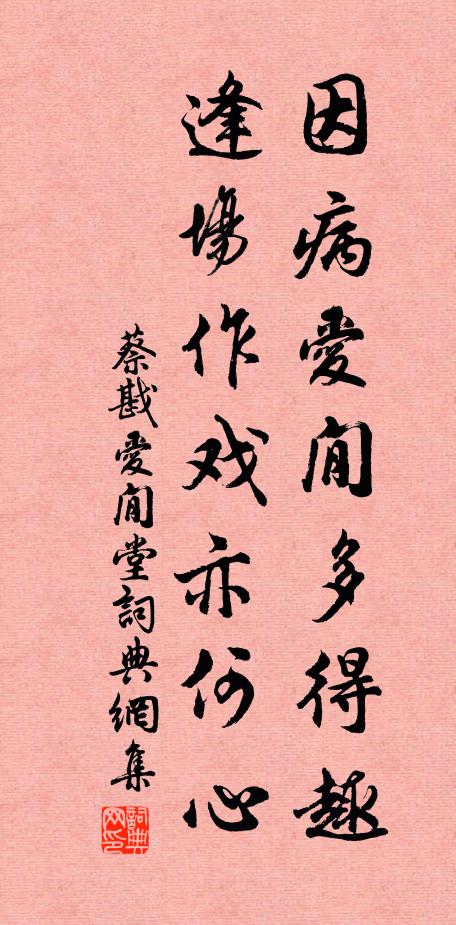 因病愛閒多得趣
逢場作戏亦何心
蔡戡愛閒堂詞典網集
詞典网印